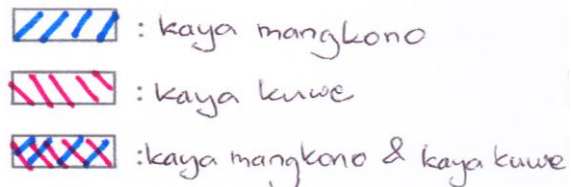 : kaya mangkono
: kaya kuwe
: kaya mangkono & kaya kuwe